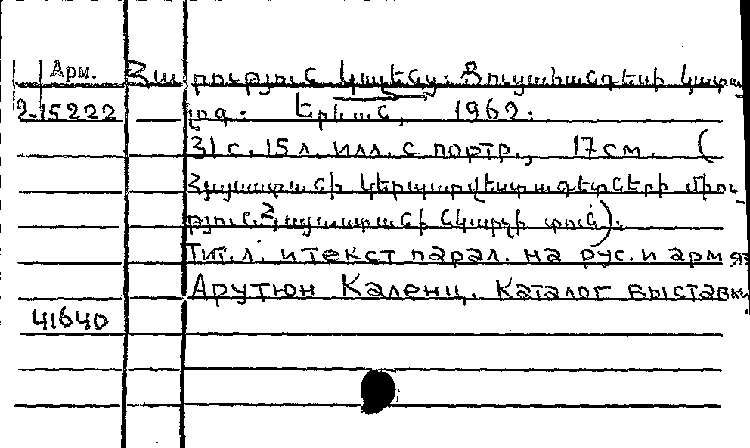 Арм. Հարություն Կալենց. Ցուցահանդեսի կատա
2-15222 լոգ. Երևան, 1962.
31 с. 15 л. илл. с портр., 17 см. (
Հայաստանի կերպարվեստագետների միու
թյուն. Հայաստանի նկարչի տուն).
Тит. л. и текст парал. на рус. и арм. яз
Арутюн Каленц. Каталог выставки.
41640